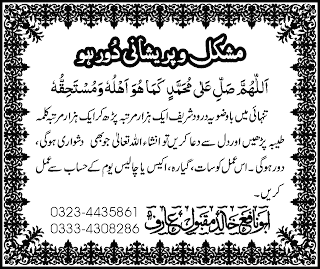 مشکل و پریشانی دُور ہو
اَللّٰهُمَّ صَلِّ عَلٰی مُحَمَّدٍ کَمَا هُوَ اَهْلُهٗ وَمُسْتَحِقُّهٗ
تنہائی میں باوضو یہ درود شریف ایک ہزار مرتبہ پڑھ کر ایک ہزار مرتبہ کلمہ
طیبہ پڑھیں اور دل سے دعا کریں تو انشاء اللہ تعالیٰ جو بھی دشواری ہوگی،
دور ہوگی۔ اس عمل کو سات، گیارہ، اکیس یا چالیس یوم کے حساب سے عمل
کریں۔
ابو نافع خالد مقبول عارفی
0323-4435861
0333-4308286